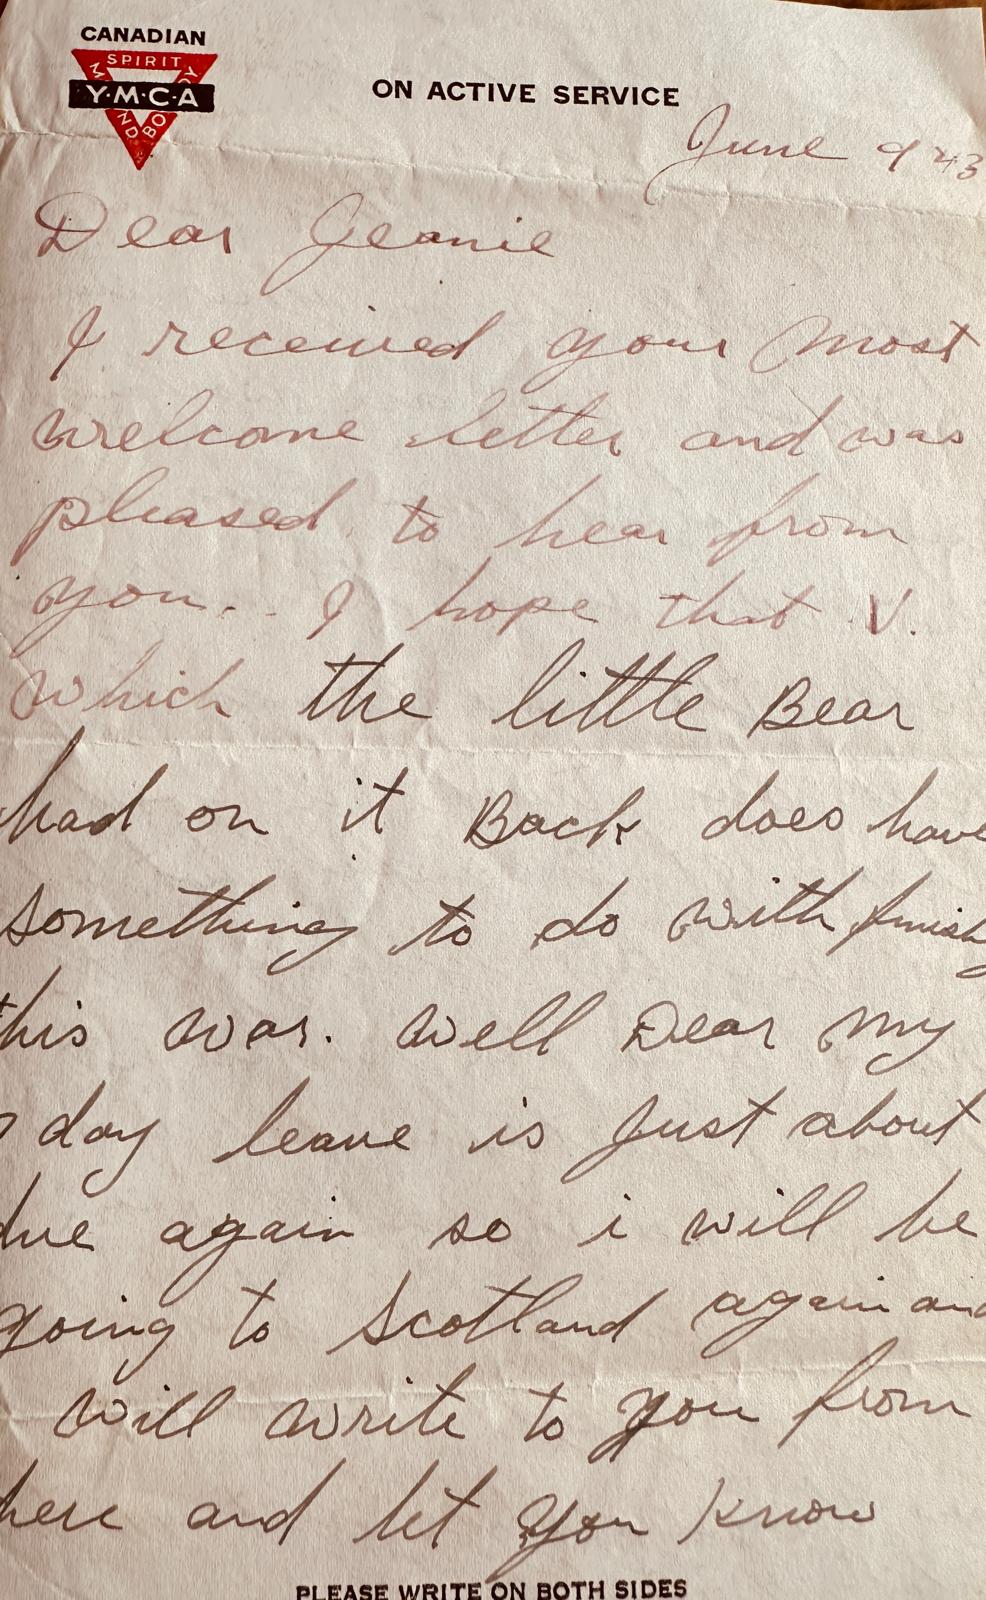 CANADIAN
SPIRIT
MIND BODY
Y·M·C·A
ON ACTIVE SERVICE
June 9 43
Dear Jeanie
I received your most
welcome letter and was
pleased to hear from
you.. I hope that V.
which the little Bear
had on it Back does have
something to do with finish
this war. Well Dear my
day leave is just about
due again so i will be
going to Scotland again and
will write to you from
here and let you know
PLEASE WRITE ON BOTH SIDES